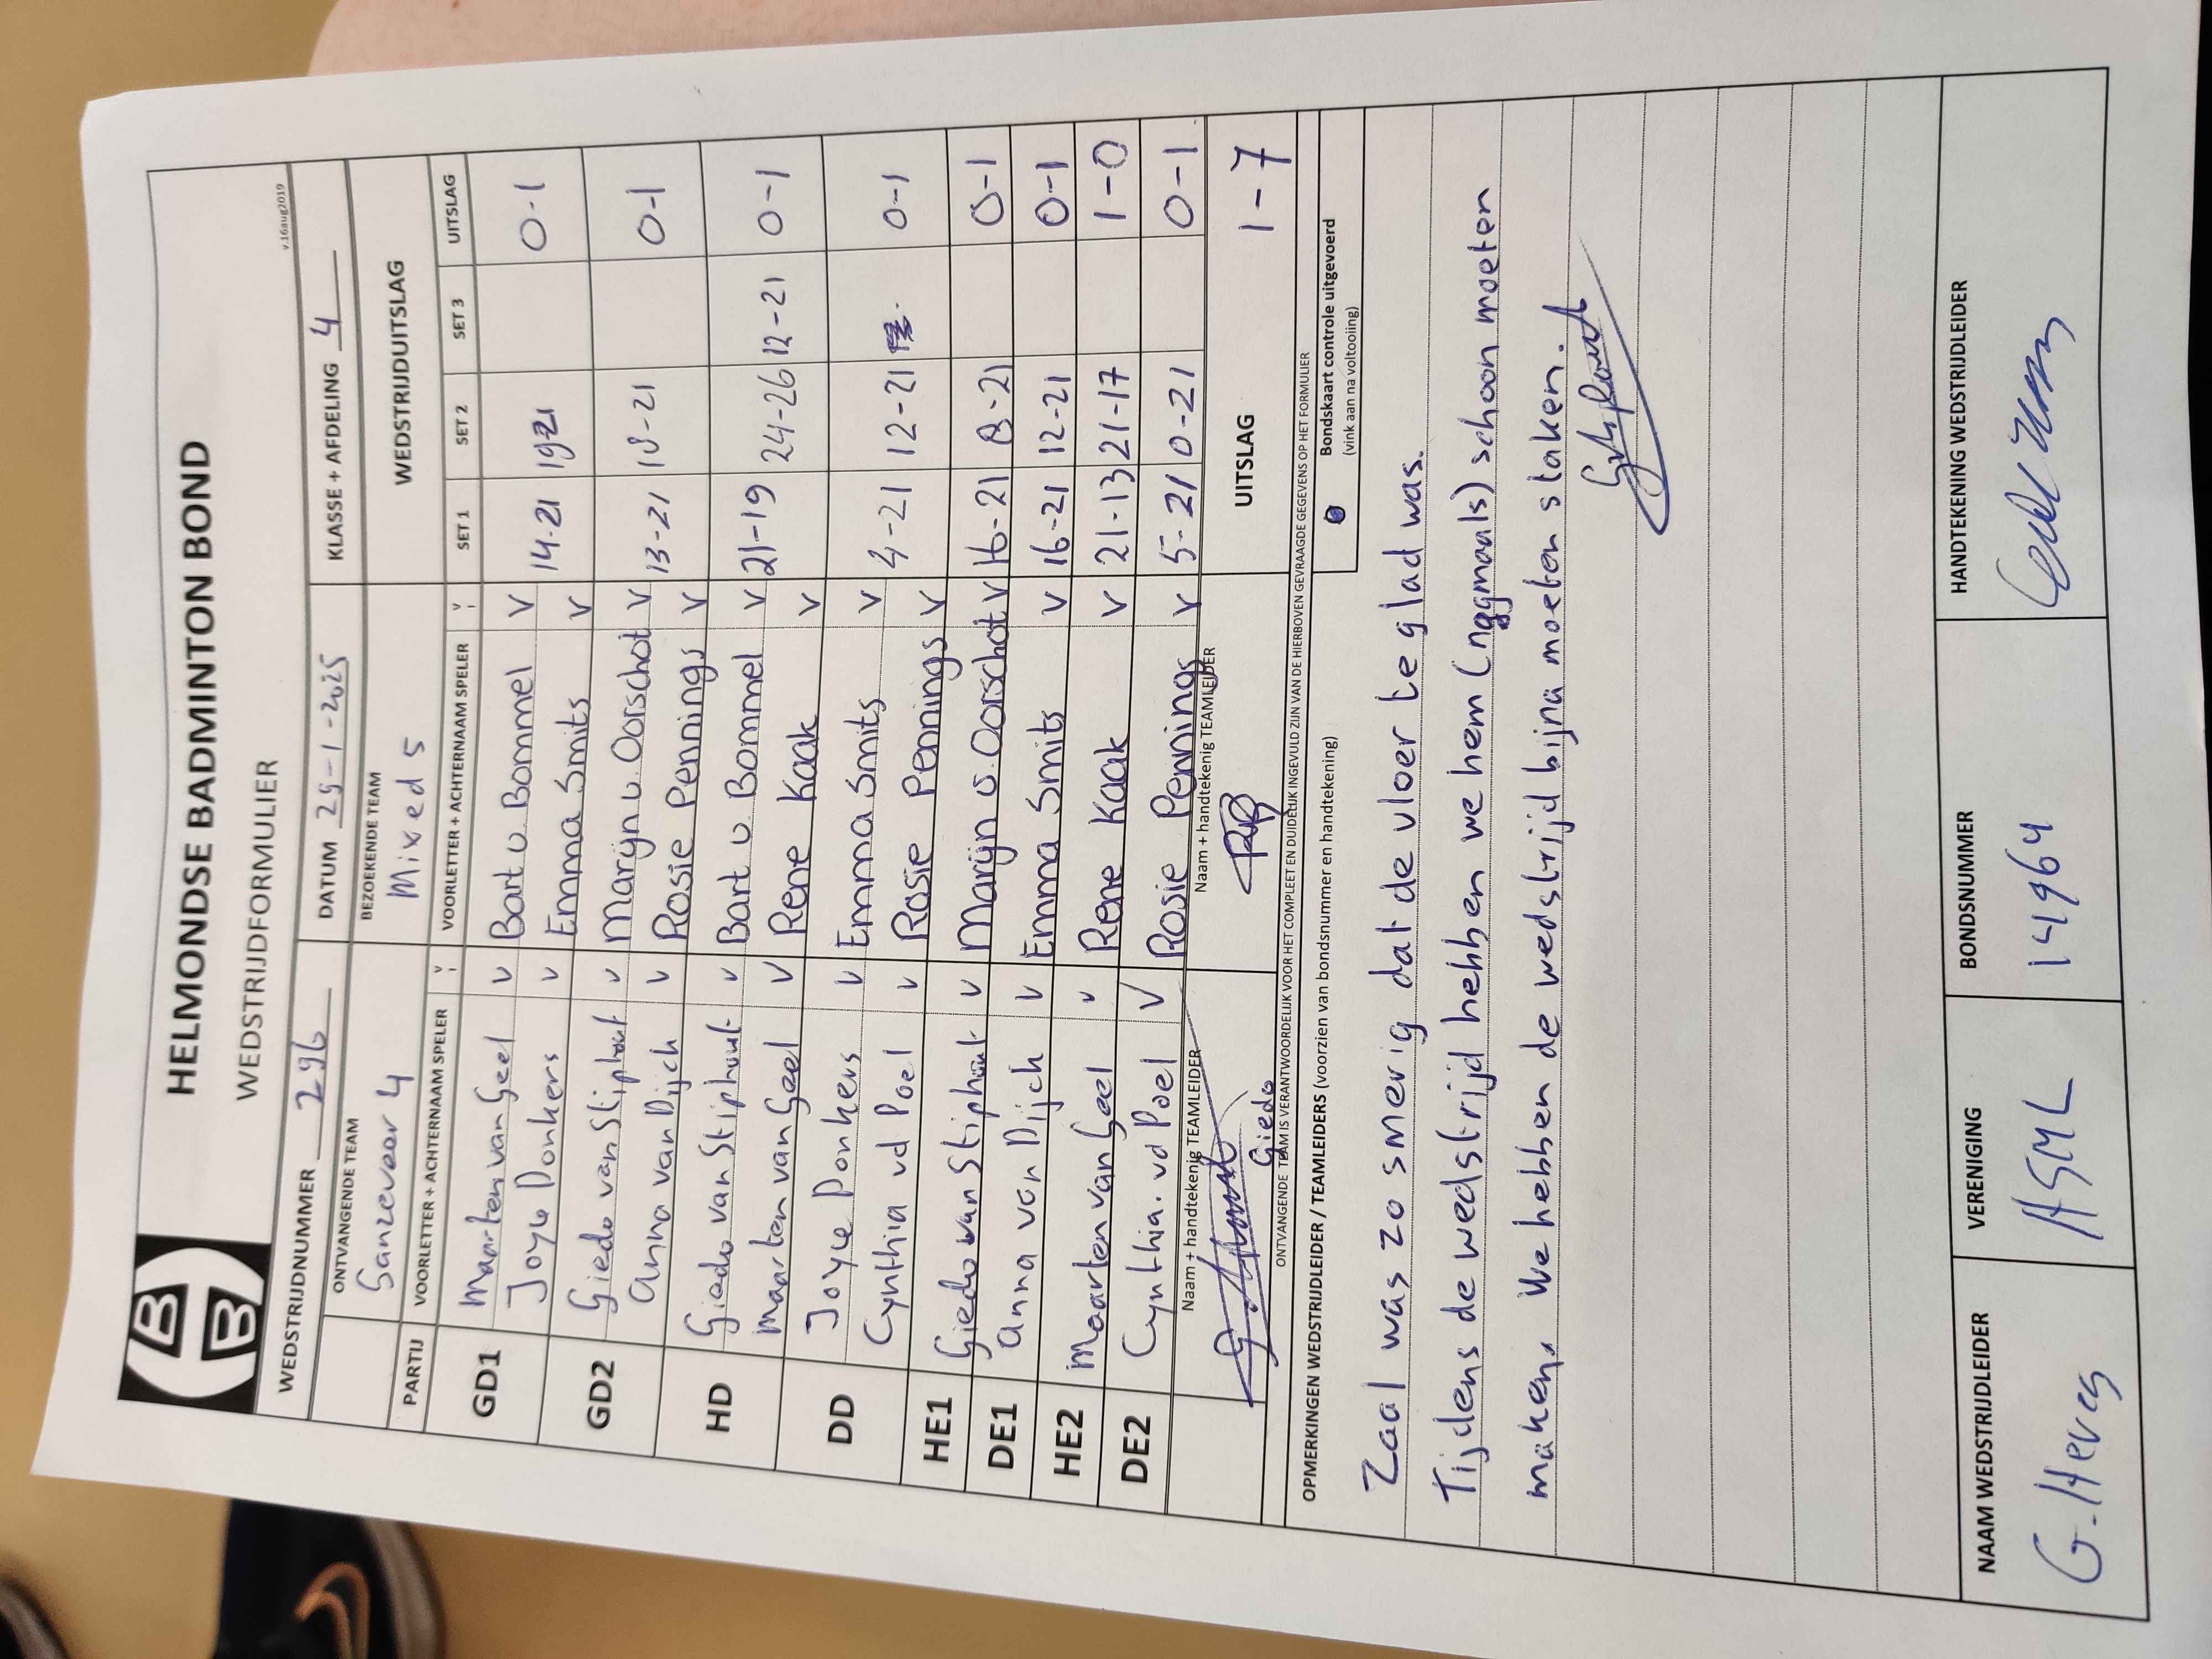 HELMONDSE BADMINTON BOND
WEDSTRIJDFORMULIER
v.16aug2019
WEDSTRIJDNUMMER 296 DATUM 29-1-2025 KLASSE + AFDELING 4
ONTVANGENDE TEAM BEZOEKENDE TEAM WEDSTRIJDUITSLAG
Ganzeveer 4 Mixed 5
PARTIJ VOORLETTER + ACHTERNAAM SPELER V VOORLETTER + ACHTERNAAM SPELER V SET 1 SET 2 SET 3 UITSLAG
GD1 Maarten van Geel v Bart v Bommel v 14-21 19-21 0-1
Joyce Donkers v Emma Smits v
GD2 Giedo van Stiphout v Marijn v. Oorschot v 13-21 18-21 0-1
Anna van Dijck v Rosie Pennings v
HD Giedo van Stiphout v Bart v Bommel v 21-19 24-26 12-21 0-1
Maarten van Geel v Rene Kaak v
DD Joyce Donkers v Emma Smits v 4-21 12-21 0-1
Cynthia vd Poel v Rosie Pennings v
HE1 Giedo van Stiphout v Marijn v. Oorschot v 16-21 8-21 0-1
DE1 Anna van Dijck v Emma Smits v 16-21 12-21 0-1
HE2 Maarten van Geel v Rene Kaak v 21-13 21-17 1-0
DE2 Cynthia vd Poel v Rosie Pennings v 5-21 10-21 0-1
Naam + handtekenig TEAMLEIDER Naam + handtekenig TEAMLEIDER UITSLAG 1-7
Giedo
ONTVANGENDE TEAM IS VERANTWOORDELIJK VOOR HET COMPLEET EN DUIDELIJK INGEVULD ZIJN VAN DE HIERBOVEN GEVRAAGDE GEGEVENS OP HET FORMULIER
OPMERKINGEN WEDSTRIJDLEIDER / TEAMLEIDERS (voorzien van bondsnummer en handtekening)
Bondskaart controle uitgevoerd
(vink aan na voltooiing)
Zaal was zo smerig dat de vloer te glad was.
Tijdens de wedstrijd hebben we hem (nogmaals) schoon moeten
maken. We hebben de wedstrijd bijna moeten staken.
NAAM WEDSTRIJDLEIDER VERENIGING BONDSNUMMER HANDTEKENING WEDSTRIJDLEIDER
G. Heres ASML 141964